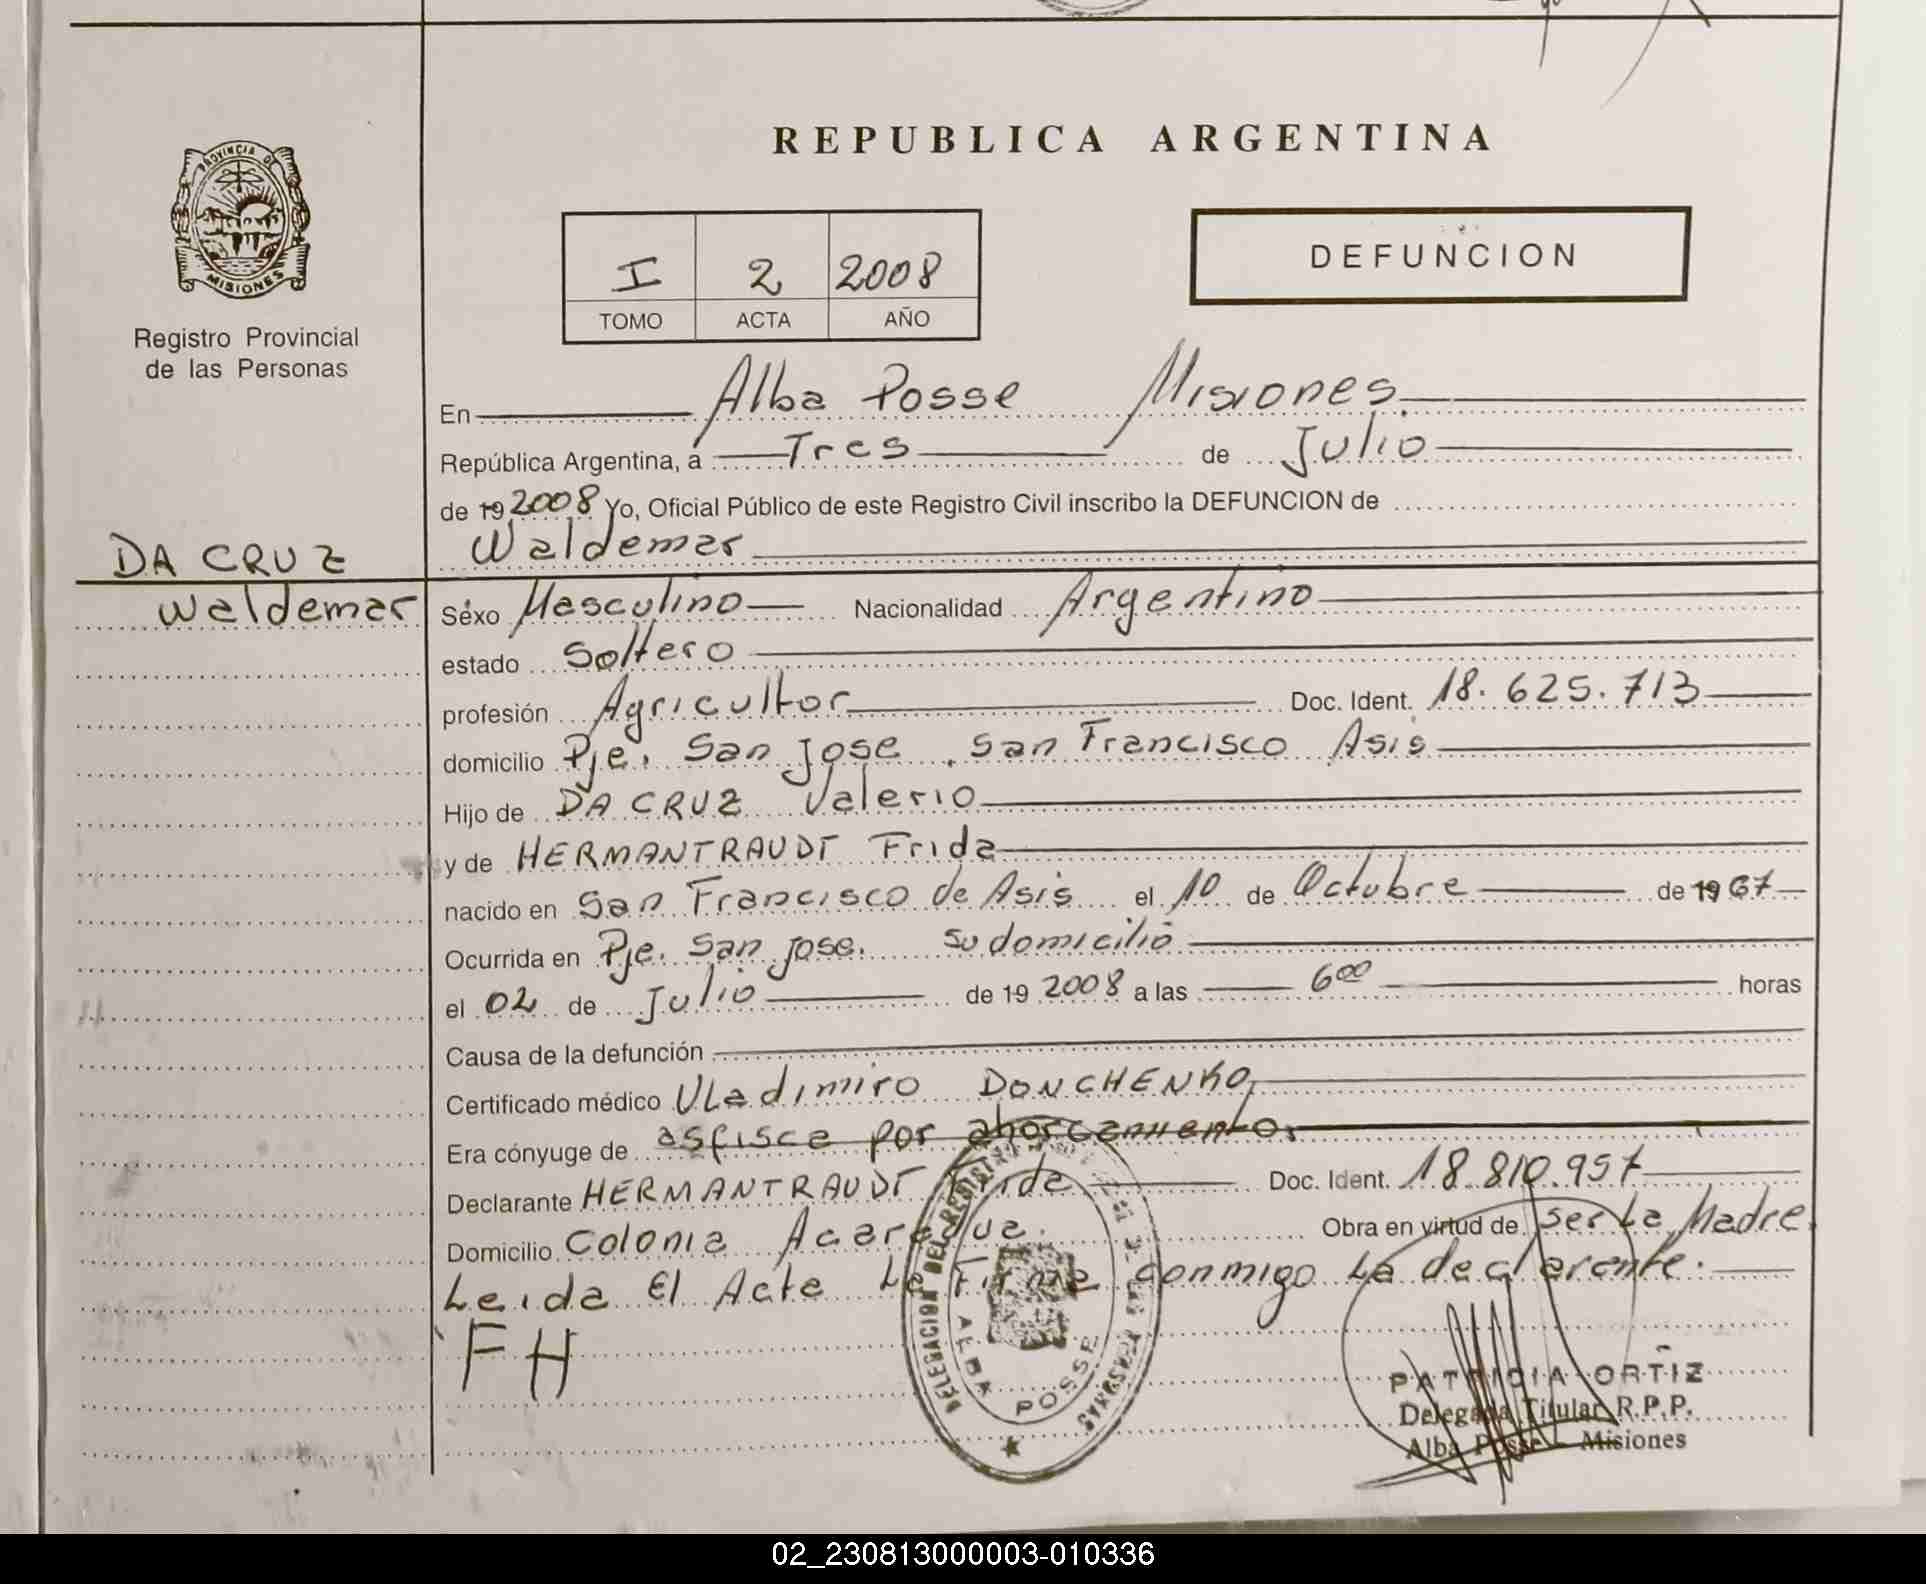 REPUBLICA ARGENTINA
PROVINCIA DE
MISIONES
Registro Provincial
de las Personas
I 2 2008
TOMO ACTA AÑO
DEFUNCION
En Alba Posse Misiones
República Argentina, a Tres de Julio
de 19 2008 Yo, Oficial Público de este Registro Civil inscribo la DEFUNCION de
DA CRUZ
Waldemar
Waldemar
Sexo Masculino Nacionalidad Argentino
estado Soltero
profesión Agricultor Doc. Ident. 18.625.713
domicilio Pje. San Jose. San Francisco Asis
Hijo de DA CRUZ Valerio
y de HERMANTRAUDT Frida
nacido en San Francisco de Asis el 10 de Octubre de 19 67
Ocurrida en Pje. San Jose. Su domicilio
el 02 de Julio de 19 2008 a las 6 00 horas
Causa de la defunción
Certificado médico Uladimiro DONCHENKO
Era cónyuge de asfisca por ahorcamiento.
Declarante HERMANTRAUDT Frida Doc. Ident. 18.810.957
Domicilio Colonia Acaragua. Obra en virtud de ser La Madre.
Leida El Acta La Firma conmigo La declarante.
F H
DELEGACION DEL REGISTRO
DE LAS PERSONAS
ALBA POSSE
PATRICIA ORTIZ
Delegada Titular R.P.P.
Alba Posse - Misiones
02_230813000003-010336